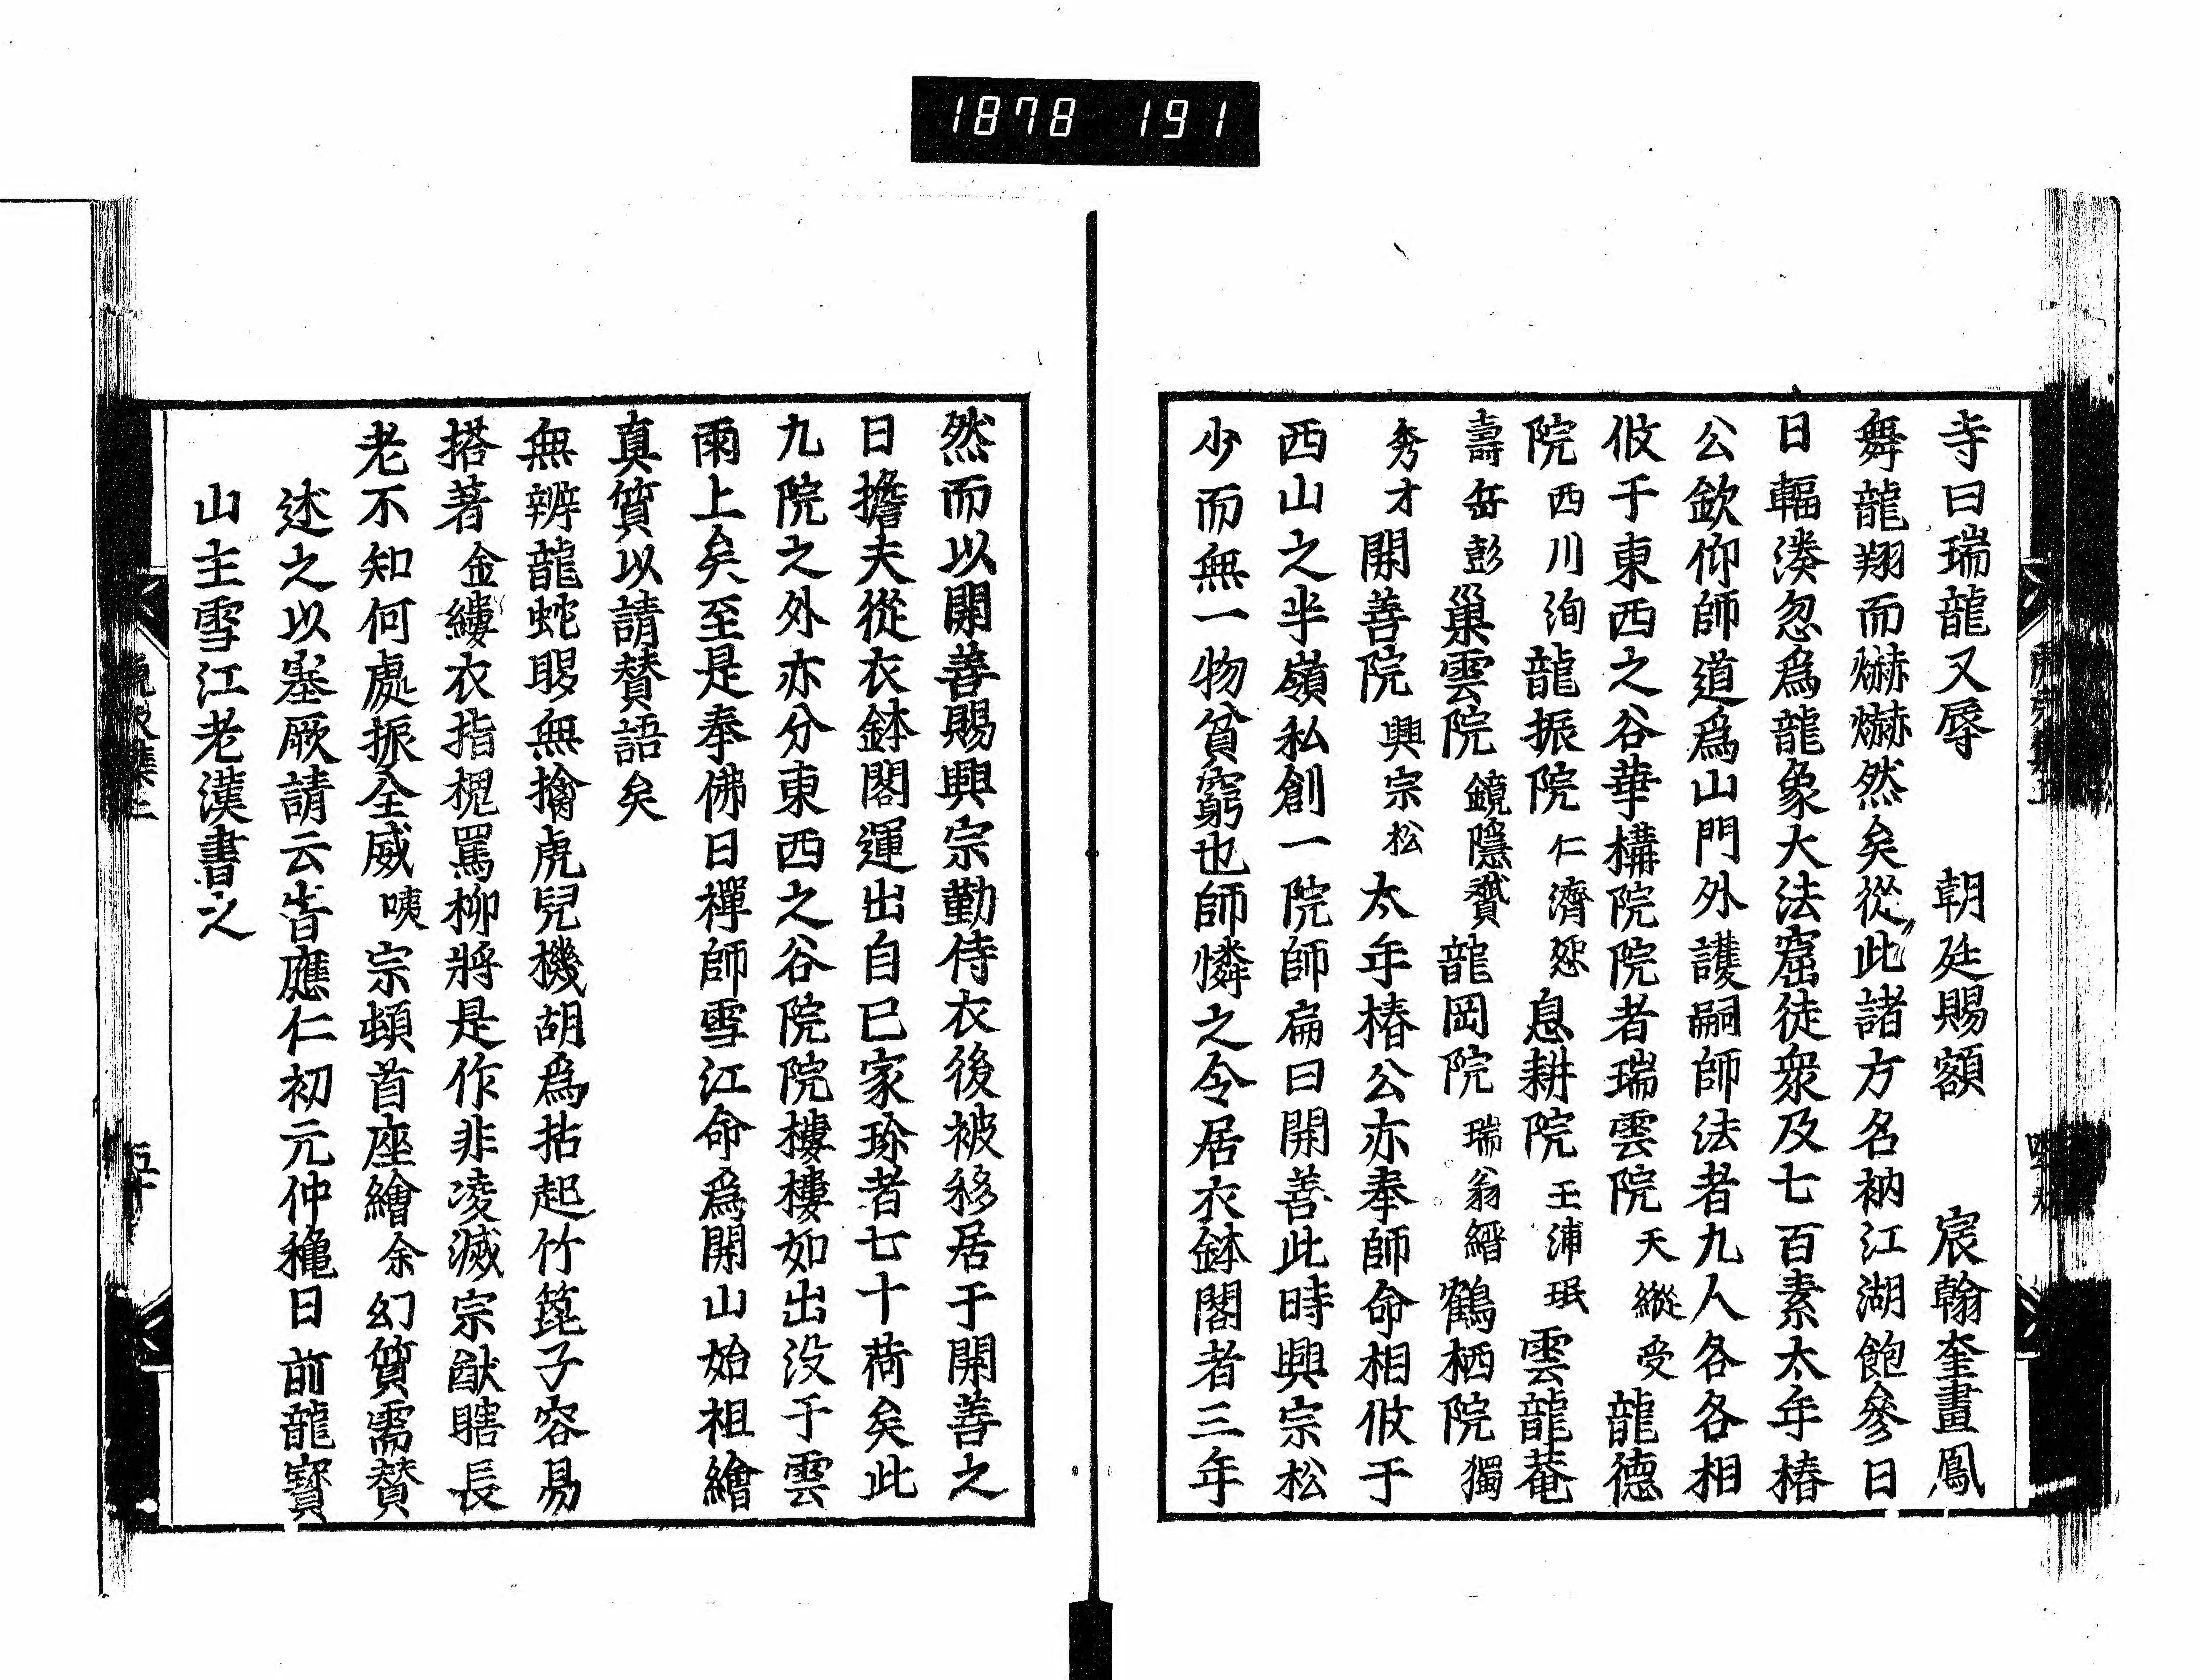 1878 191
寺曰瑞龍又辱　朝廷賜額　宸翰奎畫鳳
舞龍翔而爀爀然矣從此諸方名衲江湖飽參日
日輻湊忽爲龍象大法窟徒衆及七百素太年椿
公欽仰師道爲山門外護嗣師法者九人各各相
攸于東西之谷華構院院者瑞雲院天縱受龍德
院西川洵龍振院仁濟恕息耕院玉浦珉雲龍菴
壽岳彭巢雲院鏡隱龍岡院瑞翁縉鶴栖院獨
秀才開善院興宗松太年椿公亦奉師命相攸于
西山之半嶺私創一院師扁曰開善此時興宗松
少而無一物貧窮也師憐之令居衣鉢閣者三年
然而以開善賜興宗勤侍衣後被移居于開善之
日擔夫從衣鉢閣運出自己家珍者七十荷矣此
九院之外亦分東西之谷院院樓樓如出沒于雲
雨上矣至是奉佛日禪師雪江命爲開山始祖繪
真質以請贊語矣
無辨龍蛇眼無擒虎兕機胡爲拈起竹篦子容易
搭著金縷衣指槐罵柳將是作非凌滅宗猷瞎長
老不知何處振全威咦宗頓首座繪余幻質需賛
述之以塞厥請云旹應仁初元仲龝日前龍寶
山主雪江老漢書之
五十